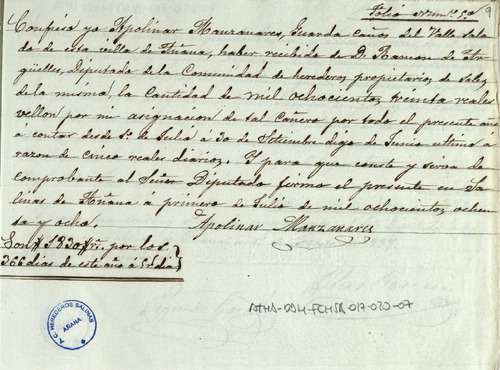 Folio Num.º 5.º
9
Confieso yo Apolinar Manzanares, Guarda caños del Valle Sala
do de esta villa de Añana, haber recibido de D. Ramon de Ar
güelles, Diputado de la Comunidad de herederos propietarios de Sales
de la misma, la cantidad de mil ochocientos treinta reales
vellon por mi asignacion de sal Cañero por todo el presente año
a contar desde 1.º de Julio á 30 de Setiembre digo de Junio ultimo a
razon de cinco reales diarios. Y para que conste y sirva de
comprobante al Señor Diputado firmo el presente en Sa
linas de Añana a primero de Julio de mil ochocientos ochen
ta y ocho.
Apolinar Manzanares
Son # 1830 # rs. por los
366 dias de este año á 5 rs. dia
A.C. HEREDEROS SALINAS
AÑANA
ATHA-DAH-FCHSA-017-020-07